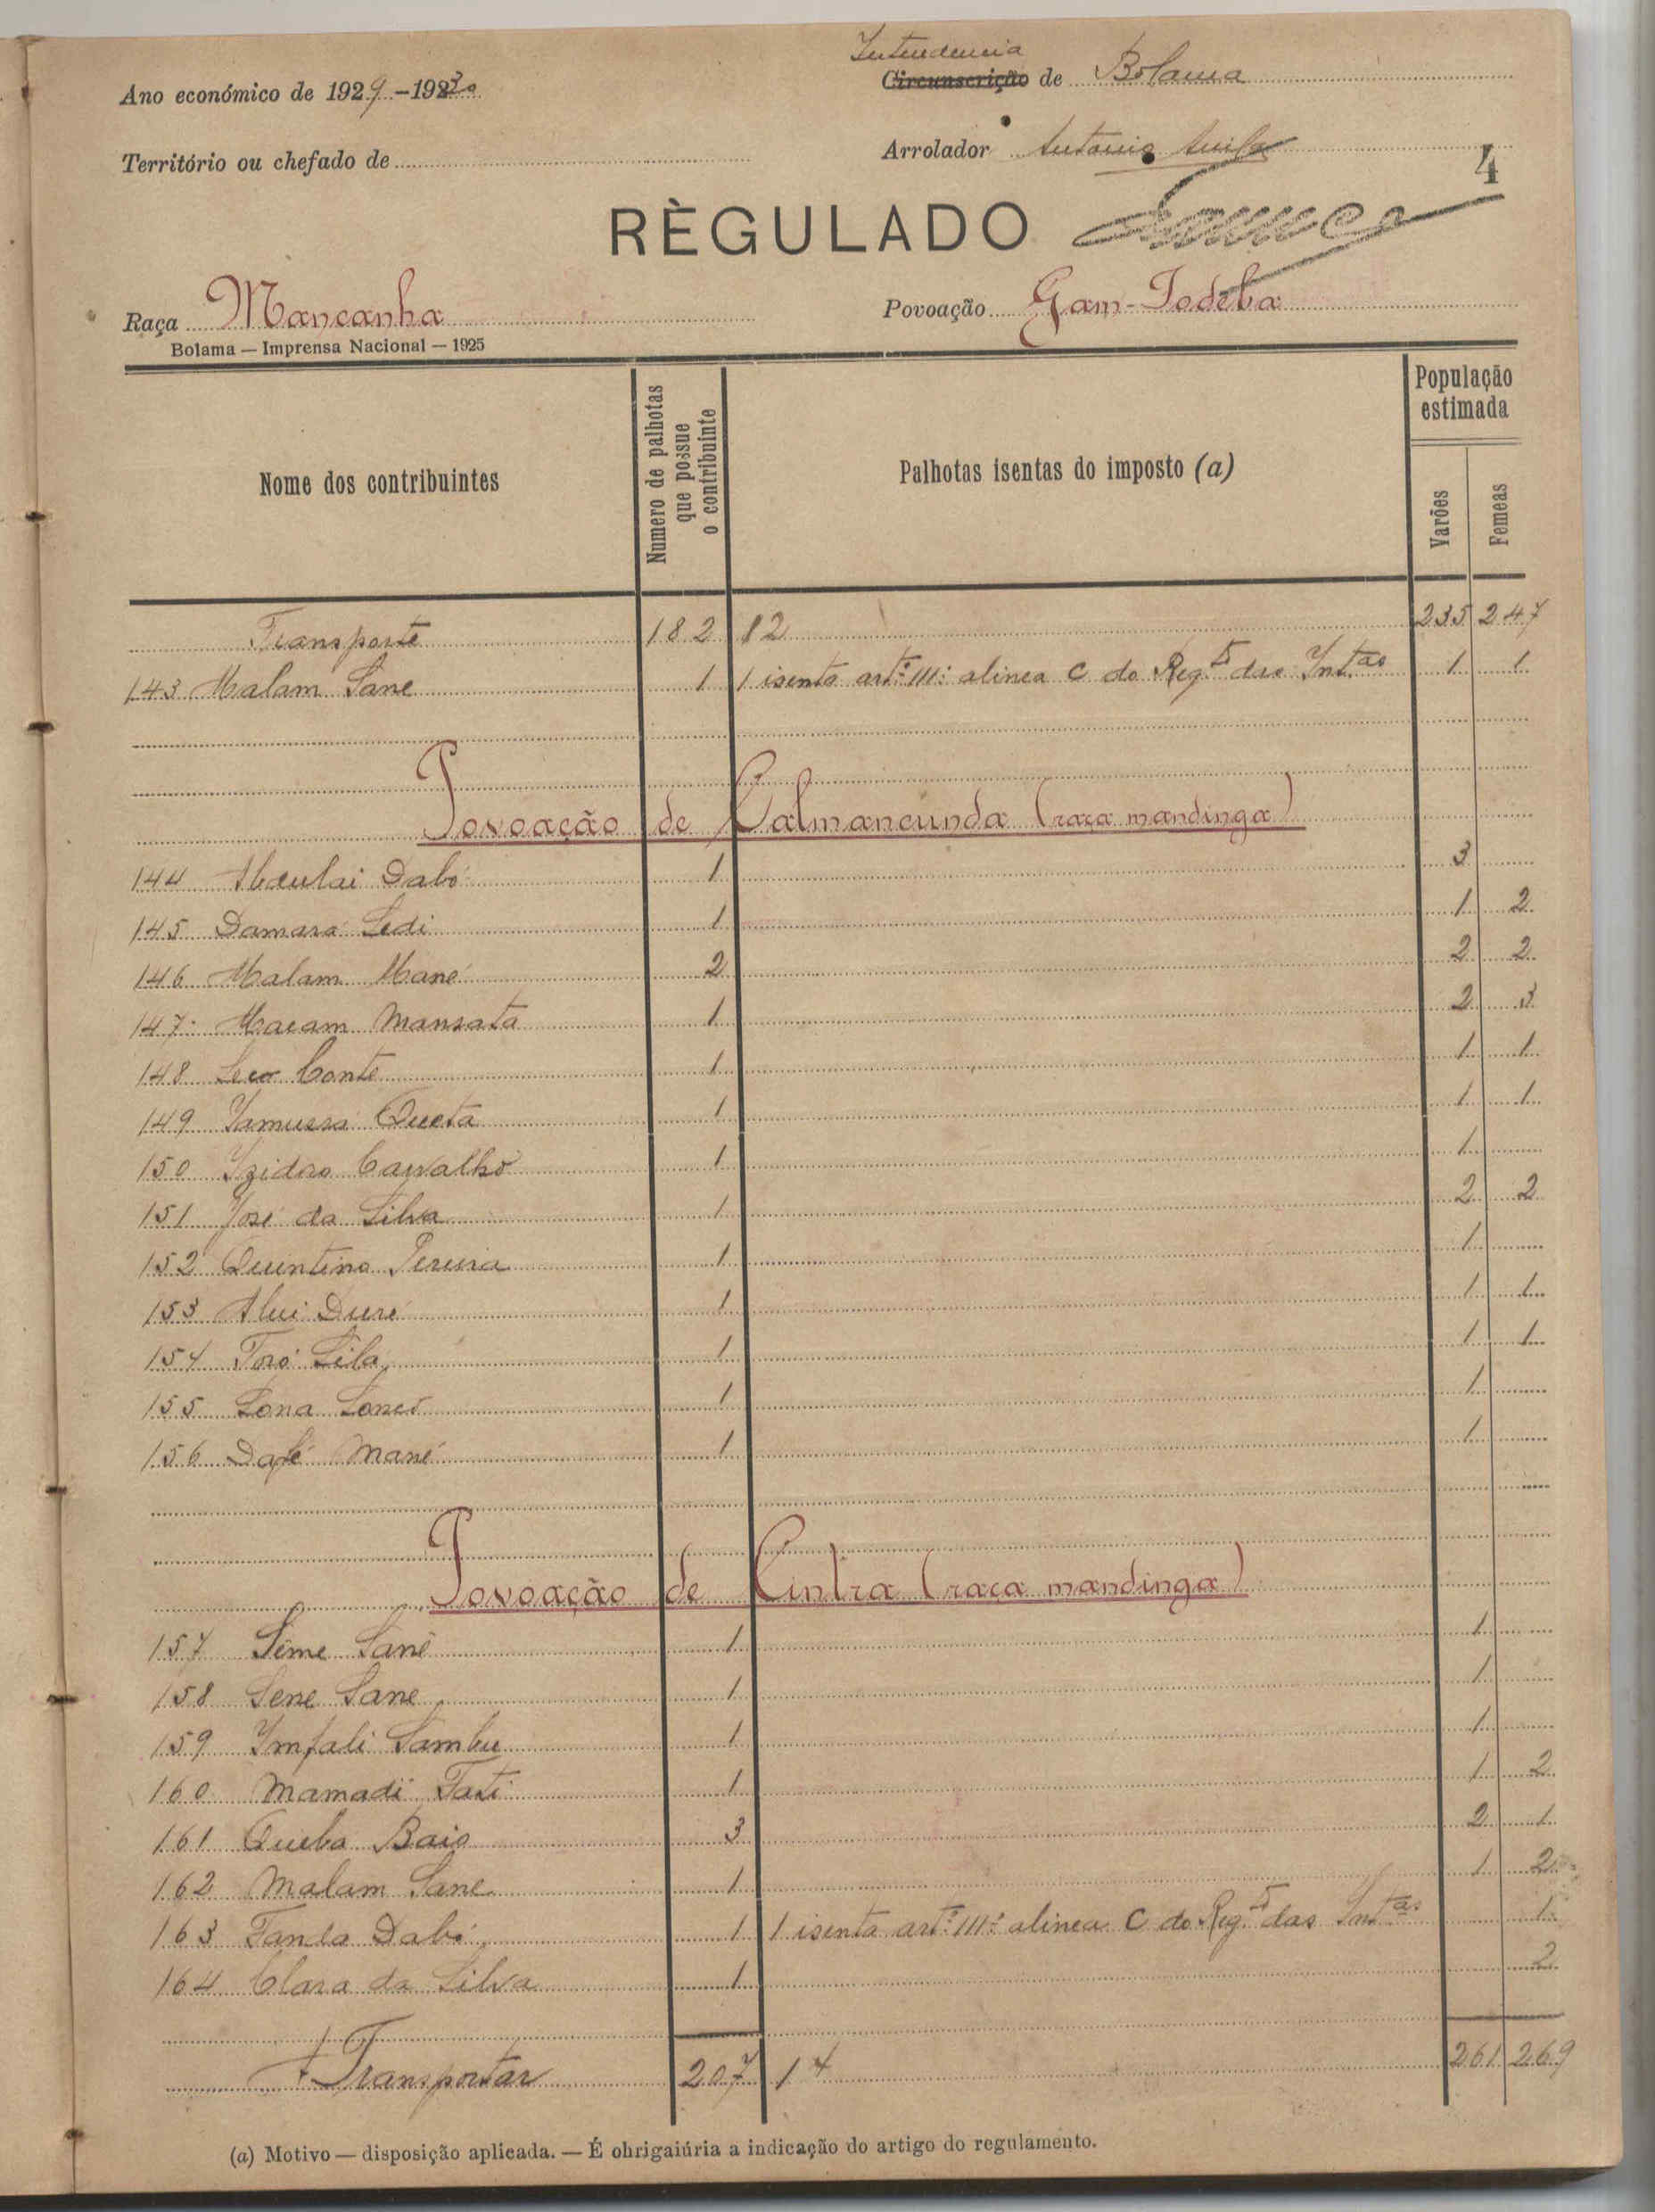 Intendencia
Ano económico de 1929-1930
Circunscrição de Bolama
Território ou chefado de
Arrolador Antonio
4
RÈGULADO
Raça Mancanha
Povoação Gam-Todeba
Bolama — Imprensa Nacional — 1925
Nome dos contribuintes
Numero de palhotas que possue o contribuinte
Palhotas isentas do imposto (a)
População estimada
Varões
Femeas
Transporte 182 12 235 247
143 Malam Sane 1 1 isento artº 111º alinea C do Regtº das Intas 1 1
Povoação de Calmancunda (raça mandinga)
144 Abdulai Dabó 1 3
145 Damará Sedi 1 1 2
146 Malam Mané 2 2 2
147 Macam Mansata 1 2 3
148 Seco Conté 1 1 1
149 Iamussa Queta 1 1 1
150 Izidro Carvalho 1 1
151 José da Silva 1 2 2
152 Quintino Pereira 1 1
153 Alui Duré 1 1 1
154 Toró Sila 1 1 1
155 Sona Soncó 1 1
156 Dafé Mané 1 1
Povoação de Cintra (raça mandinga)
157 Seme Sané 1 1
158 Sene Sane 1 1
159 Imfali Sambu 1 1
160 Mamadi Fati 1 1 2
161 Queba Baio 3 2 1
162 Malam Sane 1 1 2
163 Fanda Dabó 1 1 isenta artº 111º alinea C do Regtº das Intas 1
164 Clara da Silva 1 2
A Transportar 207 14 261 269
(a) Motivo — disposição aplicada. — É obrigaiúria a indicação do artigo do regulamento.